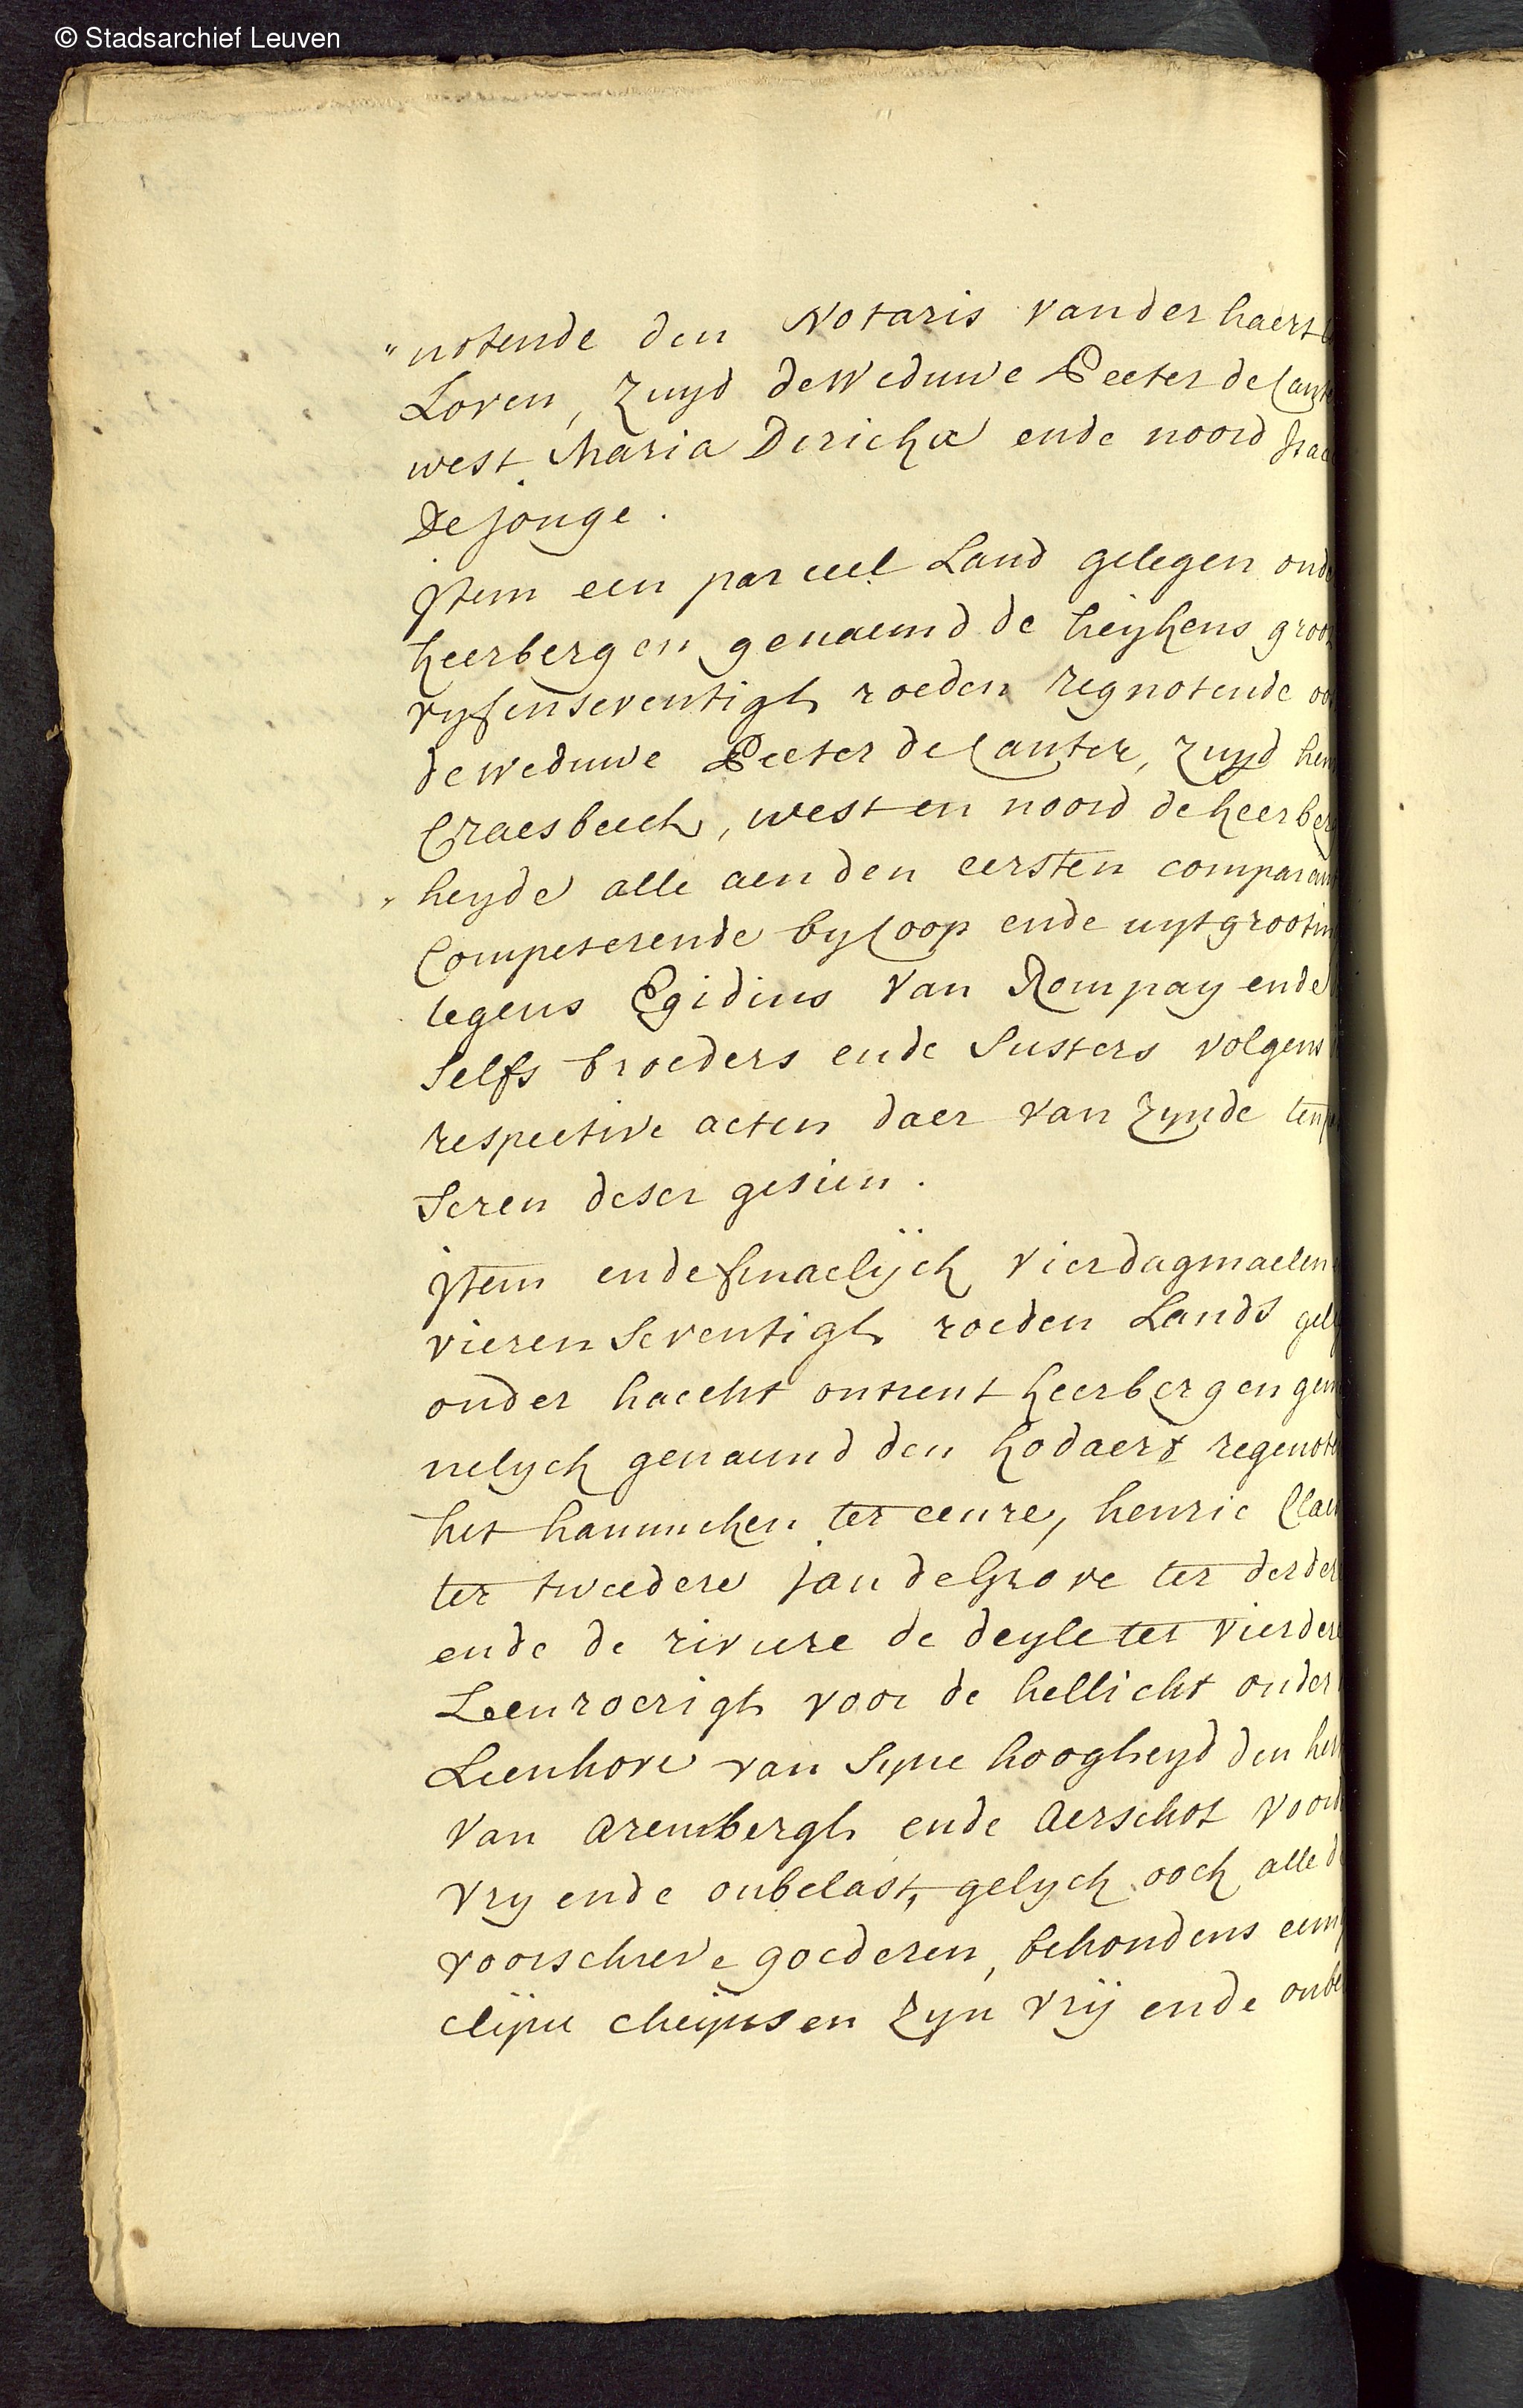 © Stadsarchief Leuven
"notende den Notaris vander haert
Loven, Zuyd de Weduwe Peeter de Cante
west Maria Derickx ende noord Isaac
De jonge.
jtem een parceel Land gelegen onde
heerbergen genaemd de heykens groot
vyfenseventigh roeden regnotende oo
de weduwe Peeter de Canter, Zuyd hen
Craesbeeck, west en noord de heerber
" heyde alle aen den eersten comparan
Competerende by Coop ende uytgrootin
tegens Egidius Van Rompay ende
Selfs broeders ende Susters volgens
respective acten daer van Zynde ten p
Seren deser gesien.
jtem ende finaelÿck vierdagmaelen
vierenSeventigh roeden Lands gele
onder haecht ontrent heerbergen gem
nelyck genaemd den hodaert regenote
het hammeken ter eenre, henric Claes
ter tweedere jan de Grove ter derder
ende de riviere de deyle ter vierdere
Leenroerigh voor de hellicht onder
Leenhove van Syne hoogheyd den her
Van Arembergh ende Aerschot voord
Vry ende onbelast, gelyck oock alle d
voorschreve goederen, behoudens eeni
clijne cheijnsen Zyn Vrÿ ende onbe